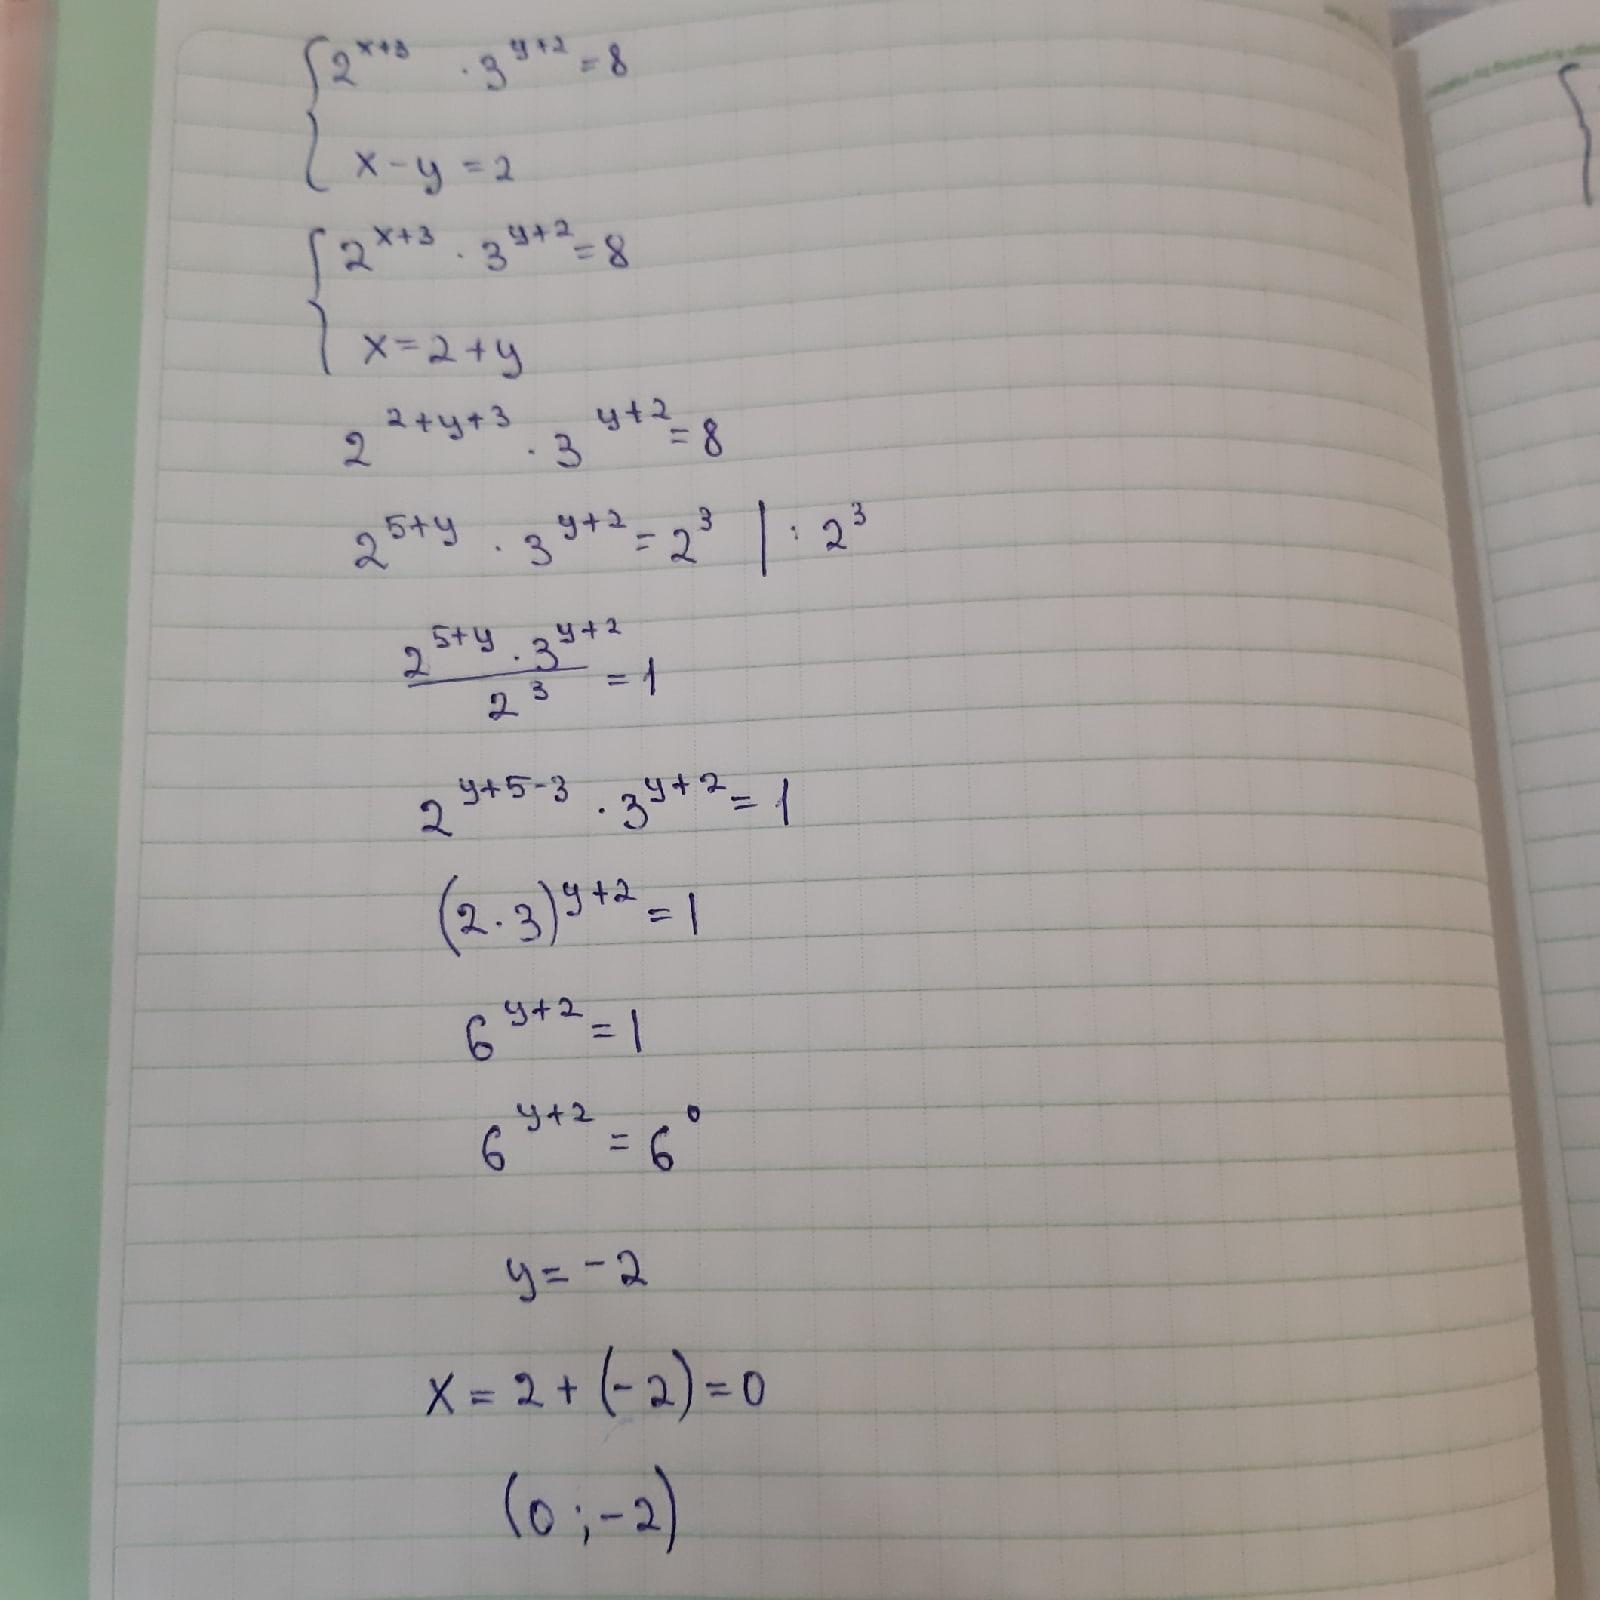 {2^{x+3} · 3^{y+2} = 8
{x - y = 2
{2^{x+3} · 3^{y+2} = 8
{x = 2 + y
2^{2+y+3} · 3^{y+2} = 8
2^{5+y} · 3^{y+2} = 2^3 | : 2^3
\frac{2^{5+y} · 3^{y+2}}{2^3} = 1
2^{y+5-3} · 3^{y+2} = 1
(2 · 3)^{y+2} = 1
6^{y+2} = 1
6^{y+2} = 6^0
y = -2
x = 2 + (-2) = 0
(0 ; -2)